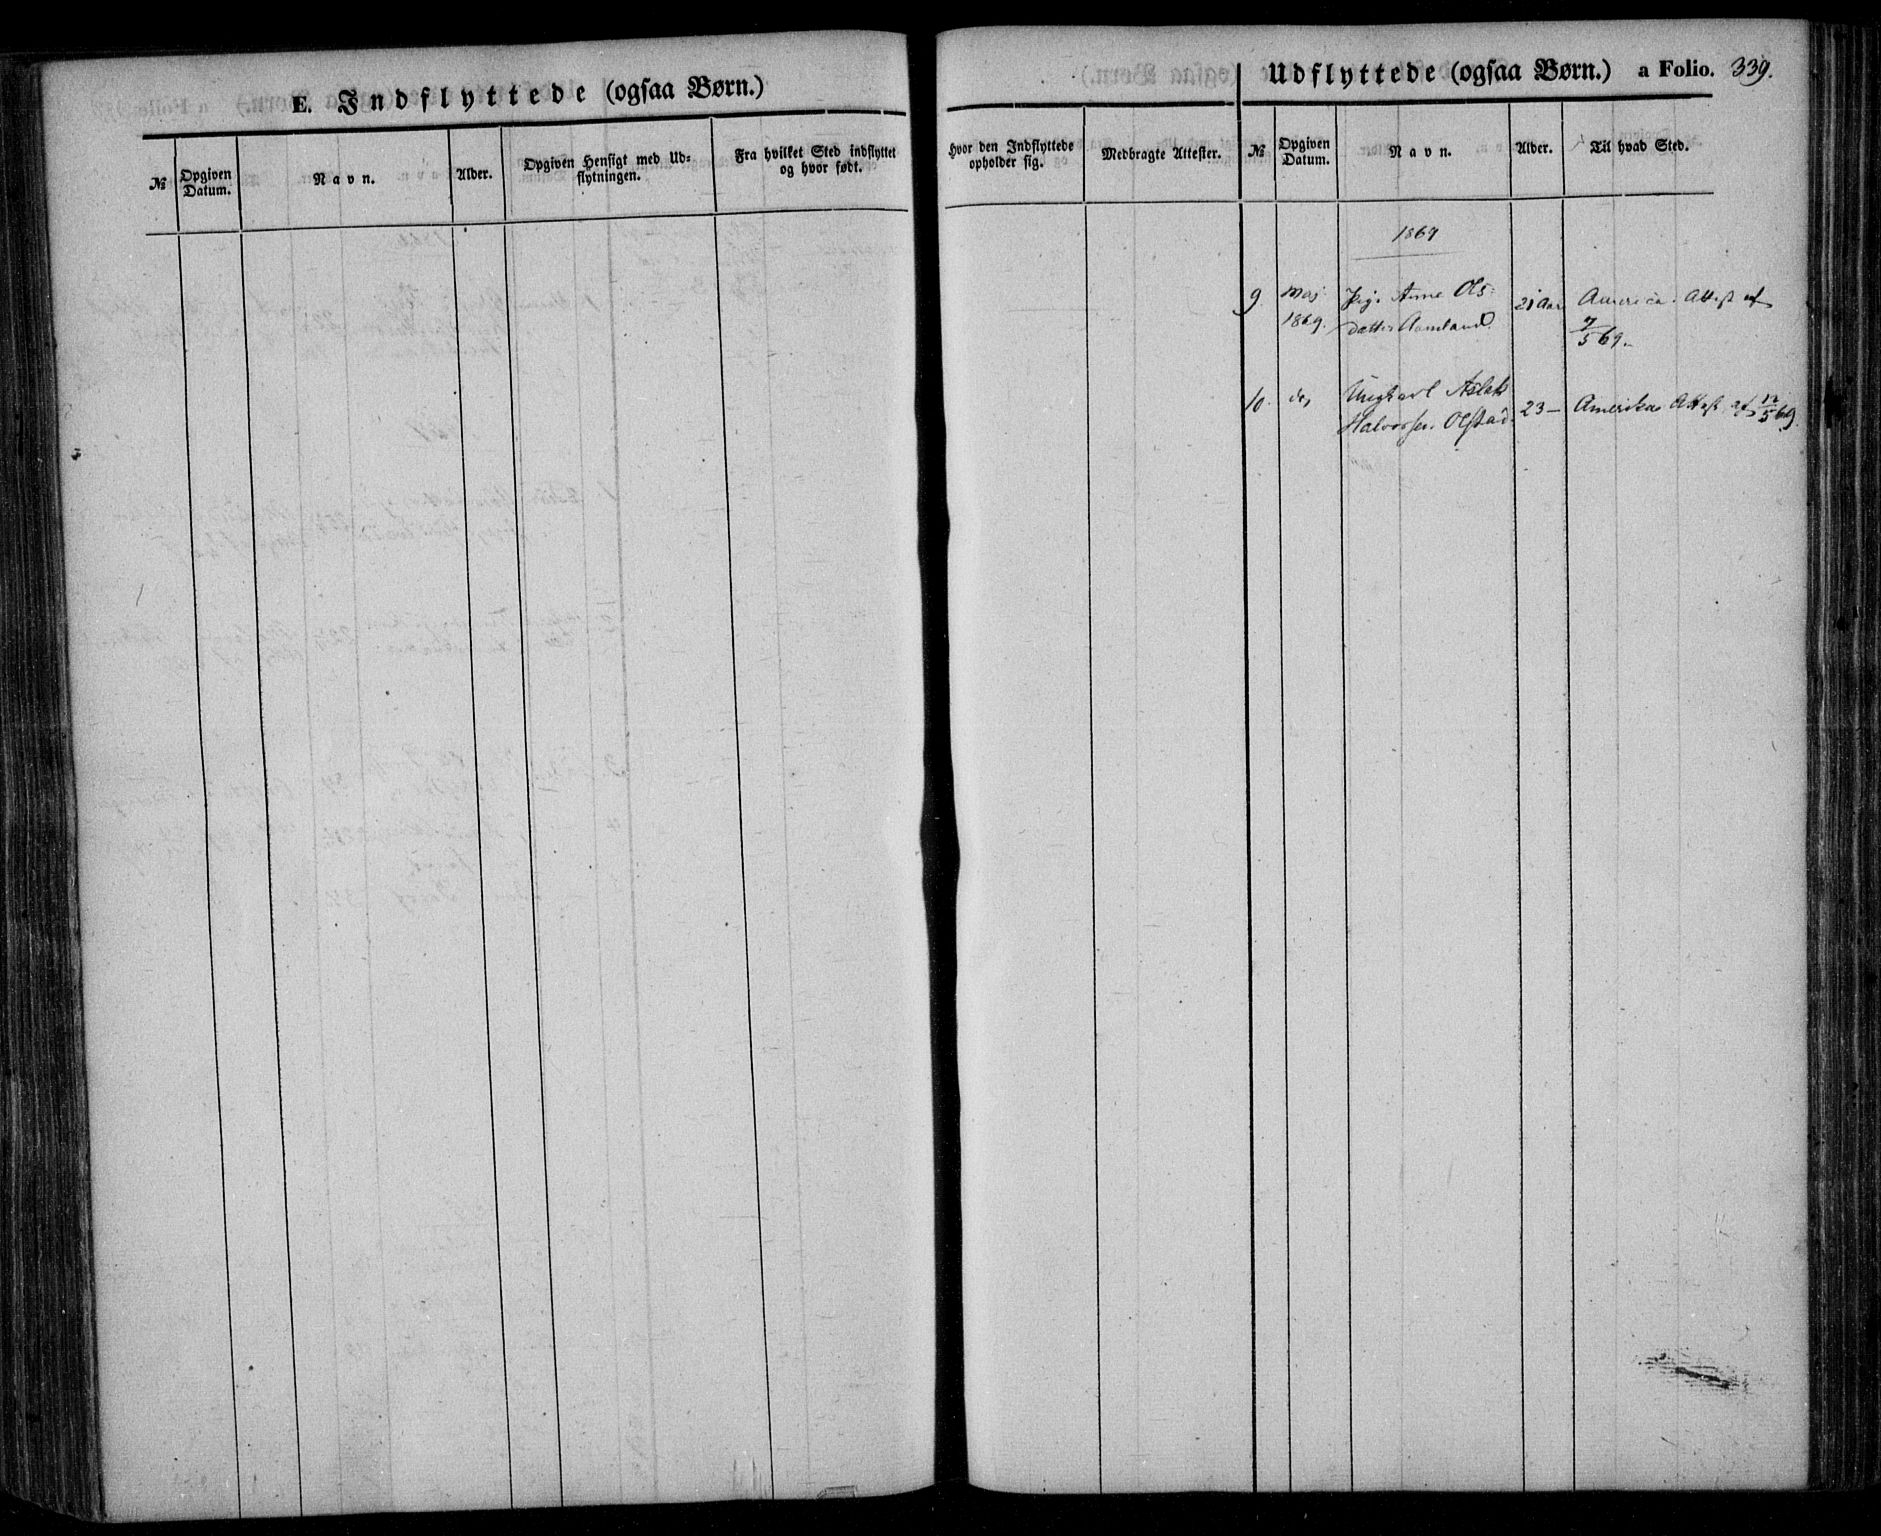 E. Indflyttede (ogsaa Børn.)
№
Opgiven Datum.
Navn.
Alder.
Opgiven Hensigt med Ud=
flytningen.
Fra hvilket Sted indflyttet
og hvor født.
Hvor den Indflyttede
opholder sig.
Medbragte Attester.
Udflyttede (ogsaa Børn.) a Folio. 339.
№
Opgiven Datum.
Navn.
Alder.
Til hvad Sted.
1869
9. Maj Pige Anne Ols= 21 Aar America. Attest af
1869. datter Aamland 7/5 69.
10. do, Ungkarl Aslak
Halvorsen Olstad 23— Amerika Attest af 12/5 69.